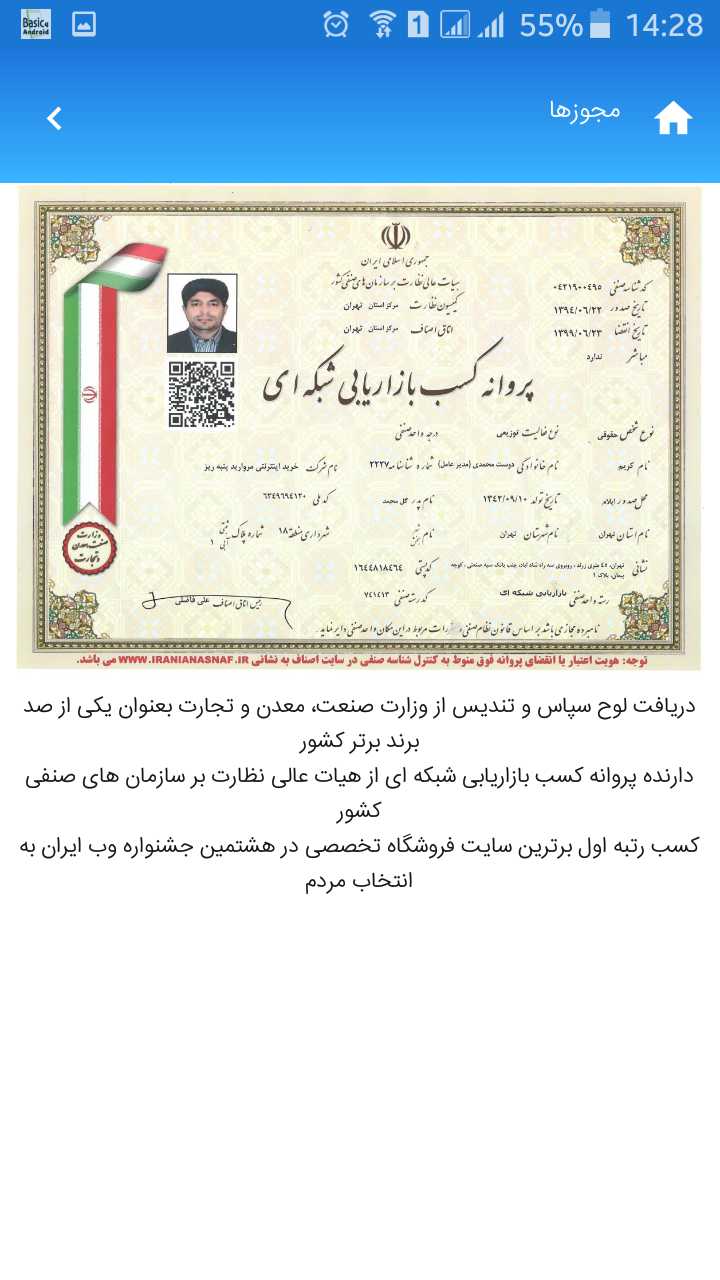 Basic4
Android
1
55%
14:28
مجوزها
جمهوری اسلامی ایران
هیات عالی نظارت بر سازمان های صنفی کشور
کمیسیون نظارت مرکز استان تهران
اتاق اصناف مرکز استان تهران
کد شناسه صنفی ۰۴۲۱۹۰۰۴۹۵
تاریخ صدور ۱۳۹۴/۰۶/۲۲
تاریخ انقضا ۱۳۹۹/۰۶/۲۳
مباشر ندارد
پروانه کسب بازاریابی شبکه ای
نوع شخص حقوقی نوع فعالیت توزیعی درجه واحد صنفی
نام کریم نام خانوادگی دوست محمدی (مدیر عامل) شماره شناسنامه ۲۲۳۷ نام شرکت خرید اینترنتی مروارید پنبه ریز
محل صدور ایلام تاریخ تولد ۱۳۴۲/۰۹/۱۰ نام پدر گل محمد کد ملی ۶۳۴۹۶۹۴۱۲۰
نام استان تهران نام شهرستان تهران نام شهر بخش شهرداری منطقه ۱۸ شماره پلاک ثبتی آبی ۱
نشانی تهران، ۴۵ متری زرند ، روبروی سه راه شاد آباد، جنب بانک سپه صنعتی ، کوچه پیمان، پلاک ۱ کد پستی ۱۶۴۴۸۱۸۴۶۴
رسته واحد صنفی بازاریابی شبکه ای کد رسته صنفی ۷۴۱۴۱۳
رییس اتاق اصناف علی فاضلی
وزارت
صنعت، معدن
و تجارت
نامبرده مجاز می باشد بر اساس قانون نظام صنفی و مقررات مربوط در این مکان واحد صنفی دایر نماید.
توجه: هویت اعتبار یا انقضای پروانه فوق منوط به کنترل شناسه صنفی در سایت اصناف به نشانی WWW.IRANIANASNAF.IR می باشد.
دریافت لوح سپاس و تندیس از وزارت صنعت، معدن و تجارت بعنوان یکی از صد
برند برتر کشور
دارنده پروانه کسب بازاریابی شبکه ای از هیات عالی نظارت بر سازمان های صنفی
کشور
کسب رتبه اول برترین سایت فروشگاه تخصصی در هشتمین جشنواره وب ایران به
انتخاب مردم